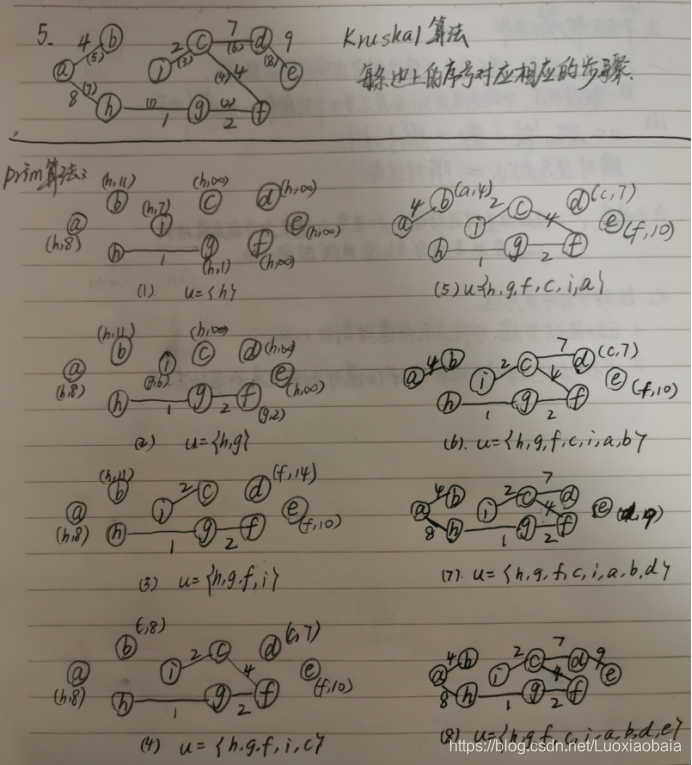 5.
Kruskal算法
每条边上的序号对应相应的步骤.
4 b (5) a (7) 8 h (1) 1 g (2) 2 f
i 2 (3) c 7 (6) d 9 (8) e (4) 4
prim算法:
(h,11) (h,∞) (h,∞)
b (h,7) c d
a i e (h,∞)
(h,8) h 1 g f
(h,1) (h,∞)
(1) u={h}
(h,11) (h,∞) (h,∞)
b i c d
a (g,6) e (h,∞)
(h,8) h 1 g 2 f
(g,2)
(2) u={h,g}
(h,11) (f,14)
b 2 c d
a i e
(h,8) h 1 g 2 f (f,10)
(3) u={h,g,f,i}
(c,8) (c,7)
b 2 c d
a i 4 e
(h,8) h 1 g 2 f (f,10)
(4) u={h,g,f,i,c}
4 b (a,4) 2 c d (c,7)
a i 4 e
h 1 g 2 f (f,10)
(5) u={h,g,f,c,i,a}
4 b 2 c 7 d (c,7)
a i e
h 1 g 2 f (f,10)
(6). u={h,g,f,c,i,a,b}
4 b 2 c 7 d
a i 4 e
8 h 1 g 2 f
(7). u={h,g,f,c,i,a,b,d}
4 b 2 c 7 d 9
a i e
8 h 1 g 2 f
(8). u={h,g,f,c,i,a,b,d,e}
https://blog.csdn.net/Luoxiaobaia